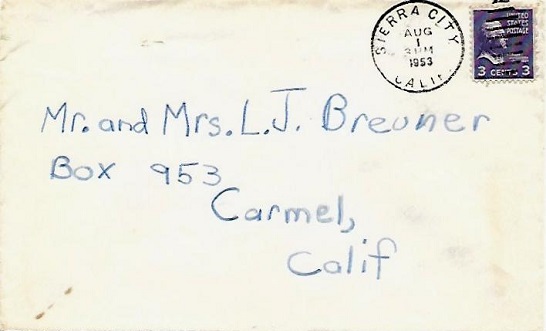 SIERRA CITY
AUG
1
1953
CALIF.
UNITED
STATES
POSTAGE
3 CENTS 3
Mr. and Mrs. L. J. Breuner
Box 953
Carmel,
Calif